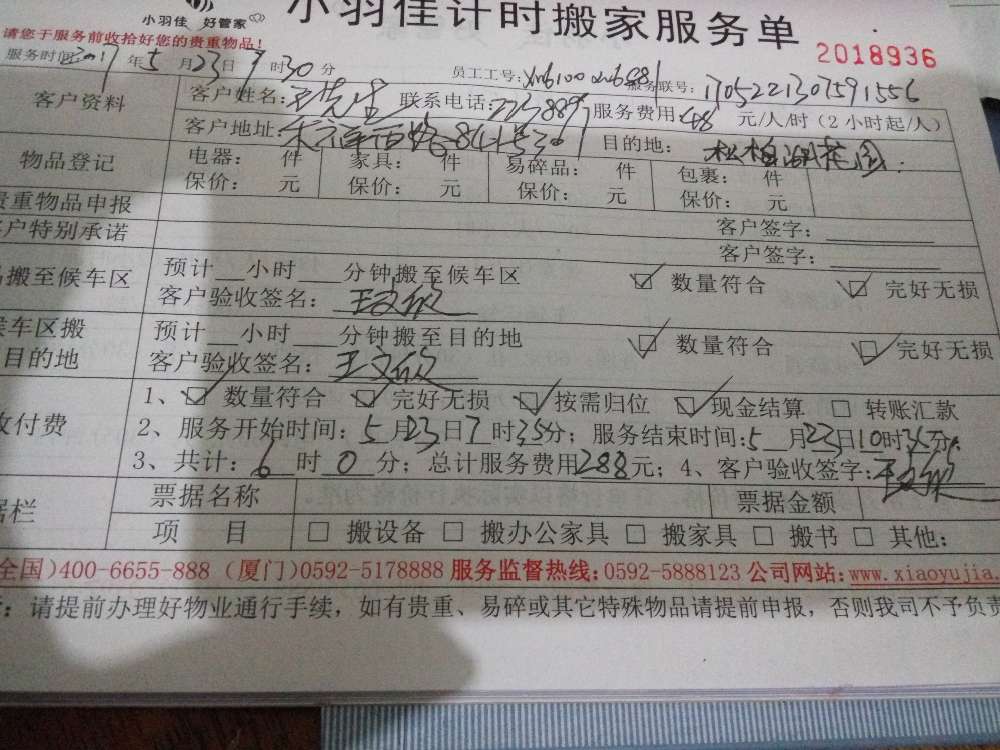 小羽佳 好管家
小羽佳计时搬家服务单
请您于服务前收拾好您的贵重物品!
2018936
服务时间2017年5月23日 时30分 员工工号: 服务联号:1705221307591556
客户资料
客户姓名:王先生 联系电话: 服务费用:48元/人/时(2小时起/人)
客户地址: 目的地:松柏湖花园.
物品登记
电器: 件 家具: 件 易碎品: 件 包裹: 件
保价: 元 保价: 元 保价: 元 保价: 元
贵重物品申报 客户签字:
户特别承诺 客户签字:
搬至候车区
预计__小时__分钟搬至候车区 ☑ 数量符合 ☑ 完好无损
客户验收签名:
车区搬
目的地
预计__小时__分钟搬至目的地 ☑ 数量符合 ☑ 完好无损
客户验收签名:
付费
1、☑ 数量符合 ☑ 完好无损 ☑ 按需归位 ☑ 现金结算 □ 转账汇款
2、服务开始时间:5月23日7时35分;服务结束时间:5月23日10时35分.
3、共计:6时0分;总计服务费用288元;4、客户验收签字:
据栏
票据名称 票据金额
项 目 □ 搬设备 □ 搬办公家具 □ 搬家具 □ 搬书 □ 其他:
全国)400-6655-888 (厦门)0592-5178888 服务监督热线:0592-5888123 公司网站:www.xiaoyujia.
:请提前办理好物业通行手续,如有贵重、易碎或其它特殊物品请提前申报,否则我司不予负责